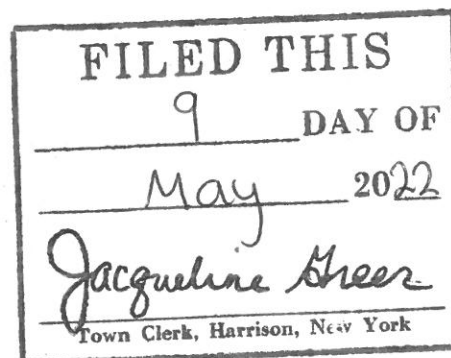 FILED THIS
9 DAY OF
May 2022
Jacqueline Greer
Town Clerk, Harrison, New York